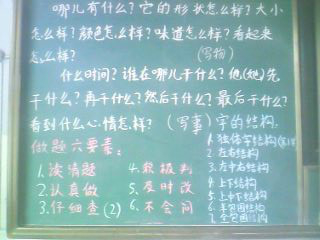 哪儿有什么?它的形状怎么样?大小
怎么样?颜色怎么样?味道怎么样?看起来
怎么样?(写物)
什么时间?谁在哪儿干什么?他(她)先
干什么?再干什么?然后干什么?最后干什么?
看到什么心情怎样?(写事)
字的结构:
做题六要素:
1.读清题
2.认真做
3.仔细查(2)
4.我批判
5.及时改
6.不会问
1.独体字结构
2.左右结构
3.左中右结构
4.上下结构
5.上中下结构
6.半包围结构
7.全包围结构